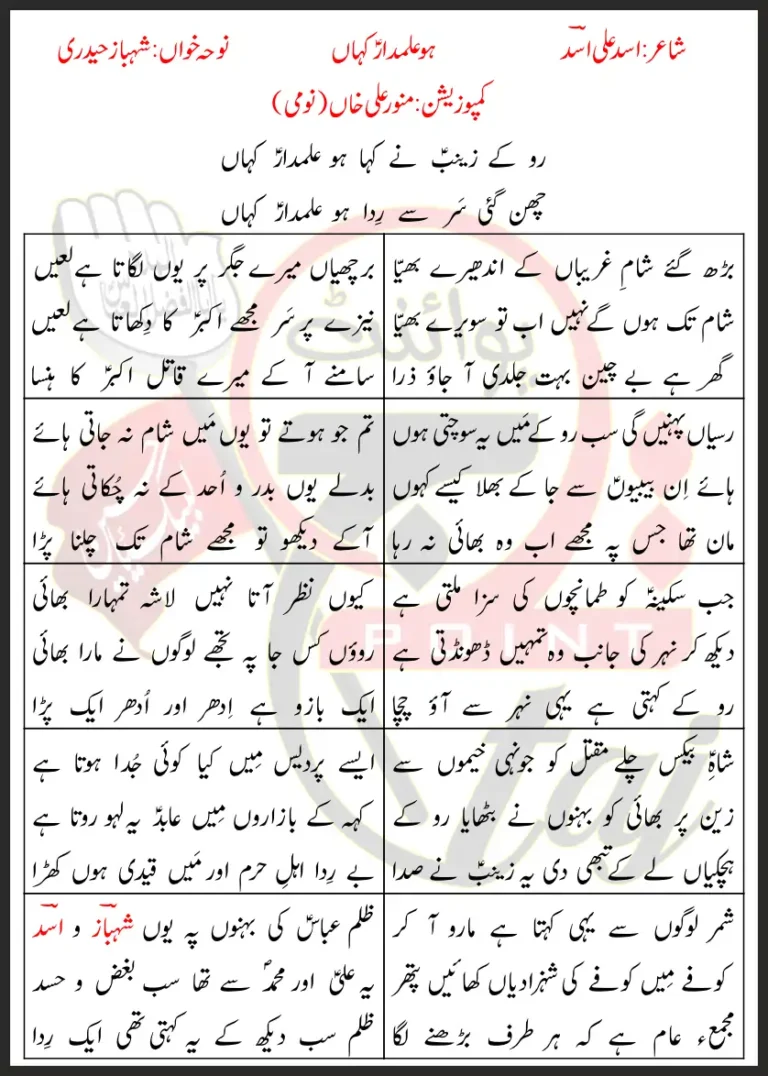 شاعر: اسد علی اسدؔ
ہو علمدارؑ کہاں
نوحہ خواں: شہباز حیدری
کمپوزیشن: منور علی خاں (نومی)
رو کے زینبؑ نے کہا ہو علمدارؑ کہاں
چھن گئی سَر سے رِدا ہو علمدارؑ کہاں
بڑھ گئے شامِ غریباں کے اندھیرے بھیّا
شام تک ہوں گے نہیں اب تو سویرے بھیّا
گھر ہے بے چین بہت جلدی آ جاؤ ذرا
برچھیاں میرے جگر پر یوں لگاتا ہے لعیں
نیزے پر سَر مجھے اکبرؑ کا دِکھاتا ہے لعیں
سامنے آ کے میرے قاتل اکبرؑ کا ہنسا
رسیاں پہنیں گی سب رو کے مَیں یہ سوچتی ہوں
ہائے اِن بیبیوںؑ سے جا کے بھلا کیسے کہوں
مان تھا جس پہ مجھے اب وہ بھائی نہ رہا
تم جو ہوتے تو یوں مَیں شام نہ جاتی ہائے
بدلے یوں بدر و اُحد کے نہ چُکاتی ہائے
آکے دیکھو تو مجھے شام تک چلنا پڑا
جب سکینہؑ کو طمانچوں کی سزا ملتی ہے
دیکھ کر نہر کی جانب وہ تمہیں ڈھونڈتی ہے
رو کے کہتی ہے یہی نہر سے آؤ چچا
کیوں نظر آتا نہیں لاشہ تمہارا بھائی
روؤں کس جا پہ تجھے لوگوں نے مارا بھائی
ایک بازو ہے اِدھر اور اُدھر ایک پڑا
شاہِؑ بیکس چلے مقتل کو جونہی خیموں سے
زین پر بھائی کو بہنوں نے بٹھایا رو کے
ہچکیاں لے کے تبھی دی یہ زینبؑ نے صدا
ایسے پردیس مِیں کیا کوئی جُدا ہوتا ہے
کہہ کے بازاروں مِیں عابدؑ یہ لہو روتا ہے
بے رِدا اہلِ حرم اور مَیں قیدی ہوں کھڑا
شمر لوگوں سے یہی کہتا ہے مارو آ کر
کوفے مِیں کوفے کی شہزادیاں کھائیں پتھر
مجمعء عام ہے کہ ہر طرف بڑھنے لگا
ظلم عباسؑ کی بہنوں پہ یوں شہبازؔ و اسدؔ
یہ علیؑ اور محمدؐ سے تھا سب بغض و حسد
ظلم سب دیکھ کے یہ کہتی تھی ایک رِدا
پوائنٹ
POINT
taj